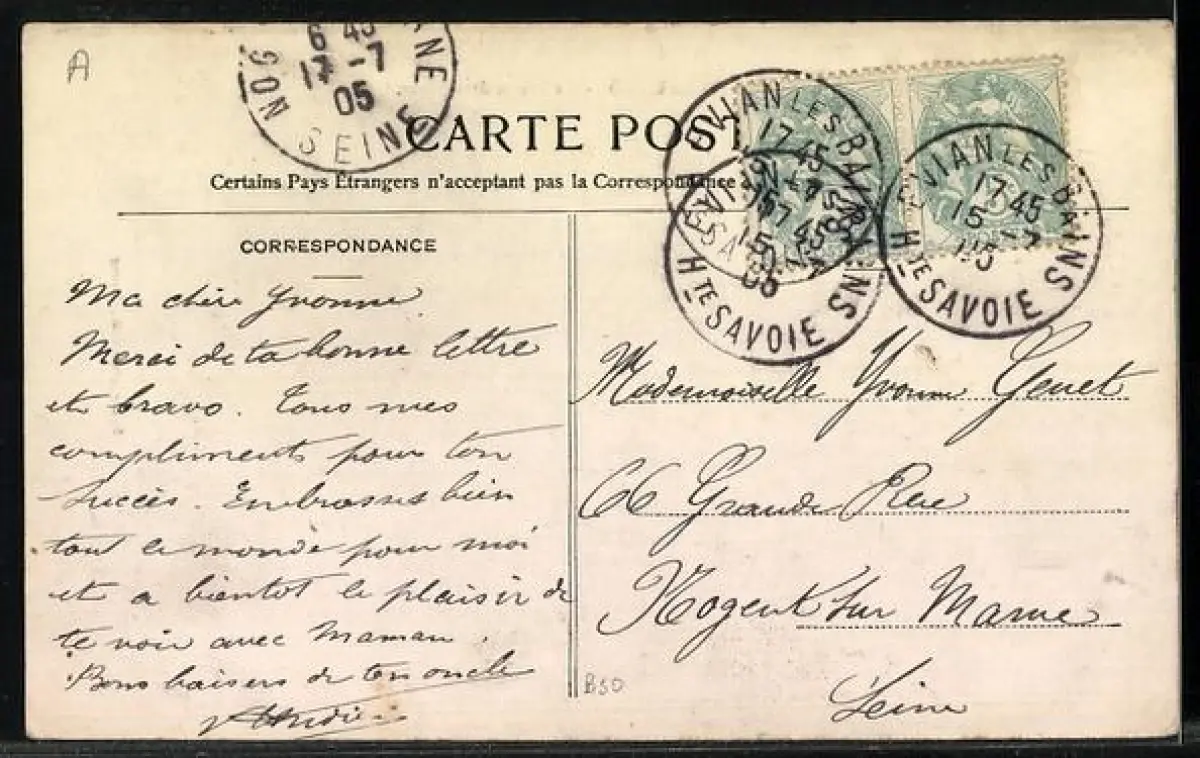 A
6 45
17 -7
05
NOG ANE
SEINE
CARTE POST
EVIAN LES BAINS
17 45
15 -7
05
Hte SAVOIE
EVIAN LES BAINS
17 45
15 -7
05
Hte SAVOIE
EVIAN LES BAINS
17 45
15 -7
05
Hte SAVOIE
Certains Pays Étrangers n'acceptant pas la Correspondance
CORRESPONDANCE
Ma chère Yvonne
Merci de ta bonne lettre
et bravo. Tous mes
compliments pour ton
succès. Embrasses bien
tout le monde pour moi
et a bientot le plaisir de
te voir avec Maman.
Bons baisers de ton oncle
Mademoiselle Yvonne Genet
66 Grande Rue
Nogent sur Marne
Seine
B30